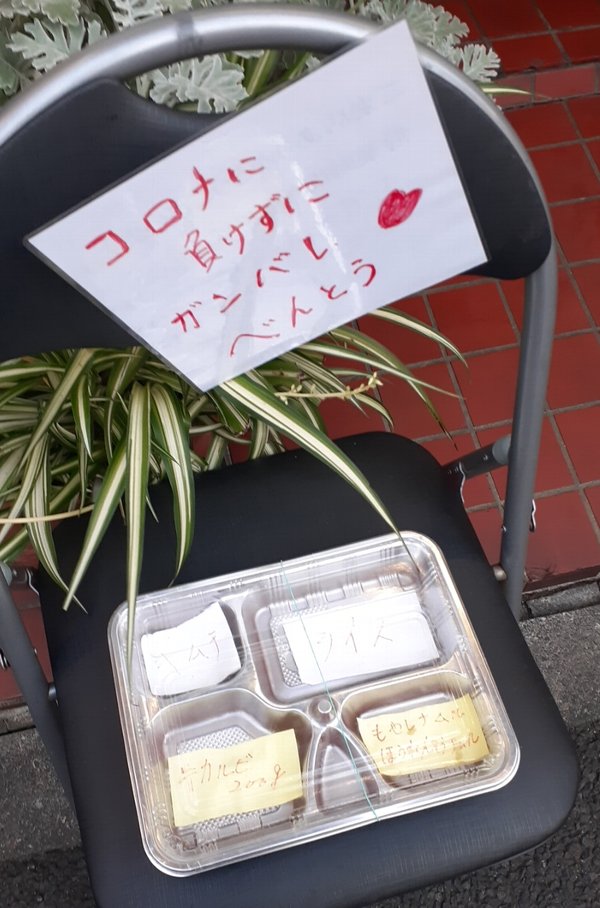 コロナに
負けずに
ガンバレ
べんとう
キムチ
ライス
牛カルビ
200g
もやしナムル